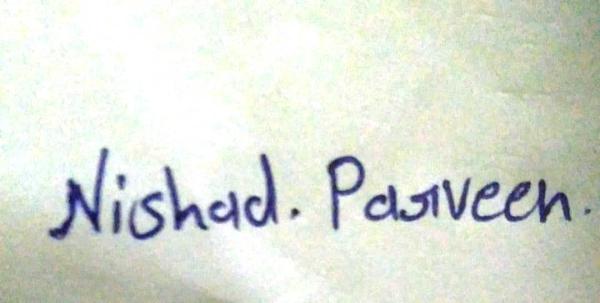 Nishad. Parveen.